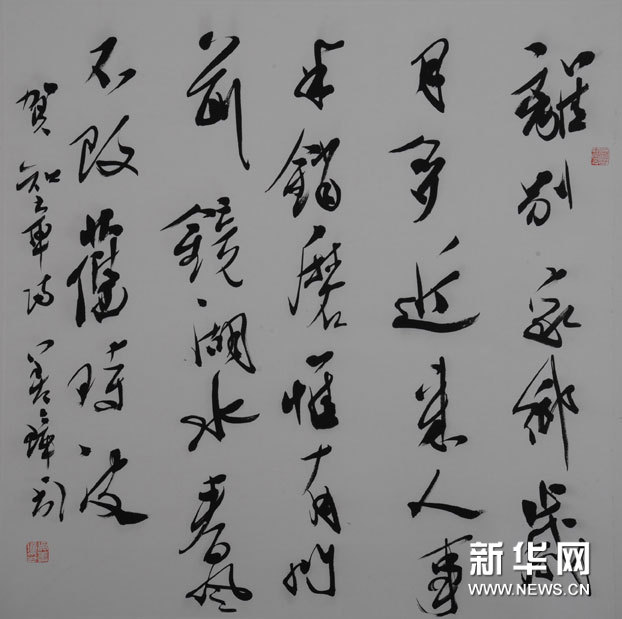 離別家鄉歲
月多近來人事
半銷磨惟有門
前鏡湖水春風
不改舊時波
賀知章詩 善璋
新华网
WWW.NEWS.CN